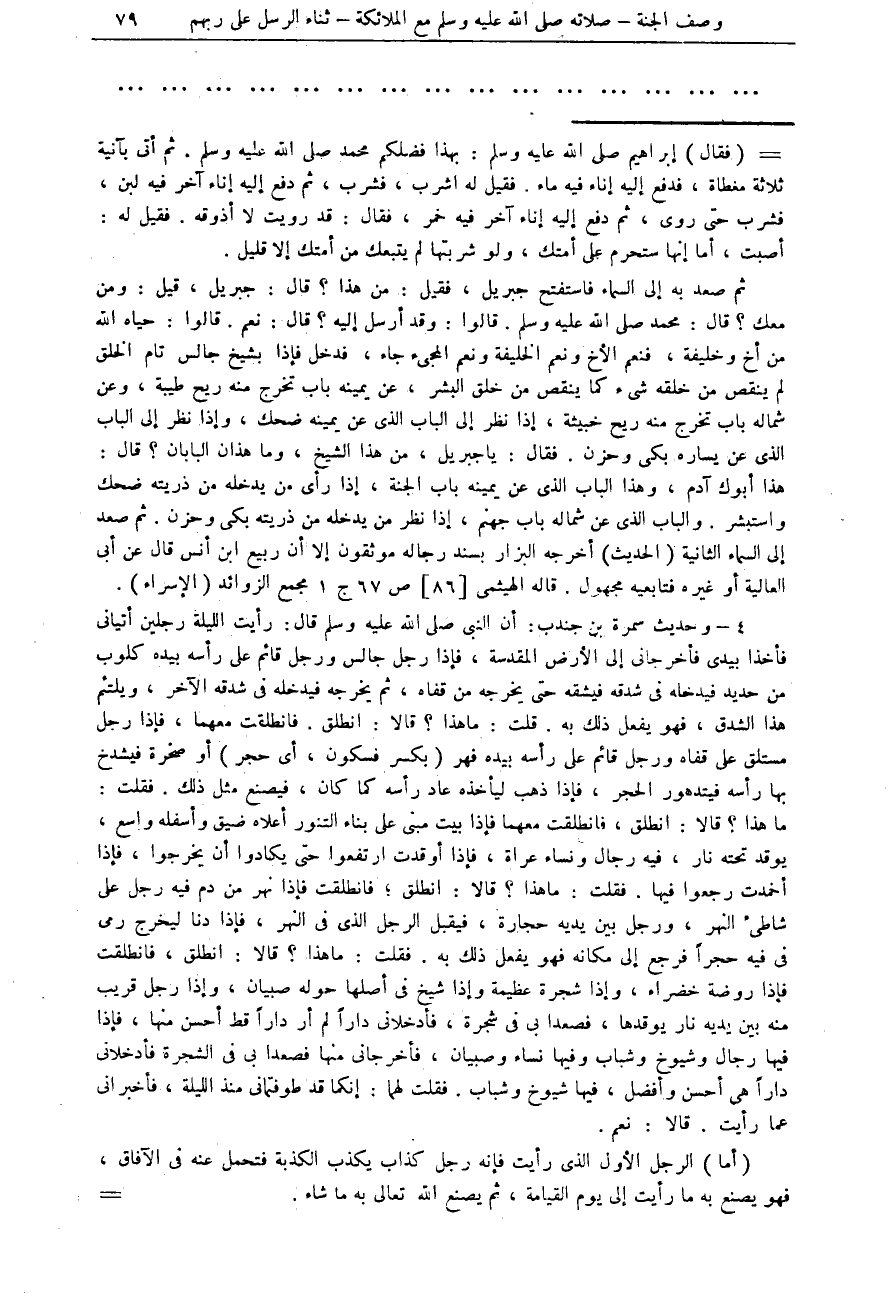 وصف الجنة – صلاته صلى الله عليه وسلم مع الملائكة – ثناء الرسل على ربهم ٧٩
... ... ... ... ... ... ... ... ... ... ... ... ... ... ...
= (فقال) إبراهيم صلى الله عايه وسلم : بهذا فضلكم محمد صلى الله عليه وسلم . ثم أتى بآنية
ثلاثة مغطاة ، فدفع إليه إناء فيه ماء . فقيل له اشرب ، فشرب ، ثم دفع إليه إناء آخر فيه لبن ،
فشرب حتى روى ، ثم دفع إليه إناء آخر فيه خمر ، فقال : قد رويت لا أذوقه . فقيل له :
أصبت ، أما إنها ستحرم على أمتك ، ولو شربتها لم يتبعك من أمتك إلا قليل .
ثم صعد به إلى السماء فاستفتح جبريل ، فقيل : من هذا ؟ قال : جبريل ، قيل : ومن
معك ؟ قال : محمد صلى الله عليه وسلم . قالوا : وقد أرسل إليه ؟ قال : نعم . قالوا : حياه الله
من أخ وخليفة ، فنعم الأخ ونعم الخليفة ونعم المجىء جاء ، فدخل فإذا بشيخ جالس تام الخلق
لم ينقص من خلقه شىء كما ينقص من خلق البشر ، عن يمينه باب تخرج منه ريح طيبة ، وعن
شماله باب تخرج منه ريح خبيثة ، إذا نظر إلى الباب الذى عن يمينه ضحك ، وإذا نظر إلى الباب
الذى عن يساره بكى وحزن . فقال : ياجبريل ، من هذا الشيخ ، وما هذان البابان ؟ قال :
هذا أبوك آدم ، وهذا الباب الذى عن يمينه باب الجنة ، إذا رأى من يدخله من ذريته ضحك
واستبشر . والباب الذى عن شماله باب جهنم ، إذا نظر من يدخله من ذريته بكى وحزن . ثم صعد
إلى السماء الثانية (الحديث) أخرجه البزار بسند رجاله موثقون إلا أن ربيع ابن أنس قال عن أبى
العالية أو غيره فتابعيه مجهول . قاله الهيثمى [٨٦] ص ٦٧ ج ١ مجمع الزوائد (الإسراء) .
٤ – وحديث سمرة بن جندب: أن النبى صلى الله عليه وسلم قال: رأيت الليلة رجلين أتيانى
فأخذا بيدى فأخرجانى إلى الأرض المقدسة ، فإذا رجل جالس ورجل قائم على رأسه بيده كلوب
من حديد فيدخله فى شدقه فيشقه حتى يخرجه من قفاه ، ثم يخرجه فيدخله فى شدقه الآخر ، ويلتئم
هذا الشدق ، فهو يفعل ذلك به . قلت : ماهذا ؟ قالا : انطلق . فانطلقت معهما ، فإذا رجل
مستلق على قفاه ورجل قائم على رأسه بيده فهر (بكسر فسكون ، أى حجر) أو صخرة فيشدخ
بها رأسه فيتدهور الحجر ، فإذا ذهب ليأخذه عاد رأسه كما كان ، فيصنع مثل ذلك . فقلت :
ما هذا ؟ قالا : انطلق ، فانطلقت معهما فإذا بيت مبنى على بناء التنور أعلاه ضيق وأسفله واسع ،
يوقد تحته نار ، فيه رجال ونساء عراة ، فإذا أوقدت ارتفعوا حتى يكادوا أن يخرجوا ، فإذا
أخمدت رجعوا فيها . فقلت : ماهذا ؟ قالا : انطلق ؛ فانطلقت فإذا نهر من دم فيه رجل على
شاطىء النهر ، ورجل بين يديه حجارة ، فيقبل الرجل الذى فى النهر ، فإذا دنا ليخرج رمى
فى فيه حجراً فرجع إلى مكانه فهو يفعل ذلك به . فقلت : ماهذا ؟ قالا : انطلق ، فانطلقت
فإذا روضة خضراء ، وإذا شجرة عظيمة وإذا شيخ فى أصلها حوله صبيان ، وإذا رجل قريب
منه بين يديه نار يوقدها ، فصعدا بى فى شجرة ، فأدخلانى داراً لم أر داراً قط أحسن منها ، فإذا
فيها رجال وشيوخ وشباب وفيها نساء وصبيان ، فأخرجانى منها فصعدا بى فى الشجرة فأدخلانى
داراً هى أحسن وأفضل ، فيها شيوخ وشباب . فقلت لهما : إنكما قد طوفتمانى منذ الليلة ، فأخبرانى
عما رأيت . قالا : نعم .
(أما) الرجل الأول الذى رأيت فإنه رجل كذاب يكذب الكذبة فتحمل عنه فى الآفاق ،
فهو يصنع به ما رأيت إلى يوم القيامة ، ثم يصنع الله تعالى به ما شاء . =